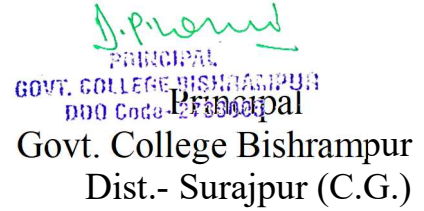 PRINCIPAL
GOVT. COLLEGE BISHRAMPUR
DDO Code-
Principal
Govt. College Bishrampur
Dist.- Surajpur (C.G.)